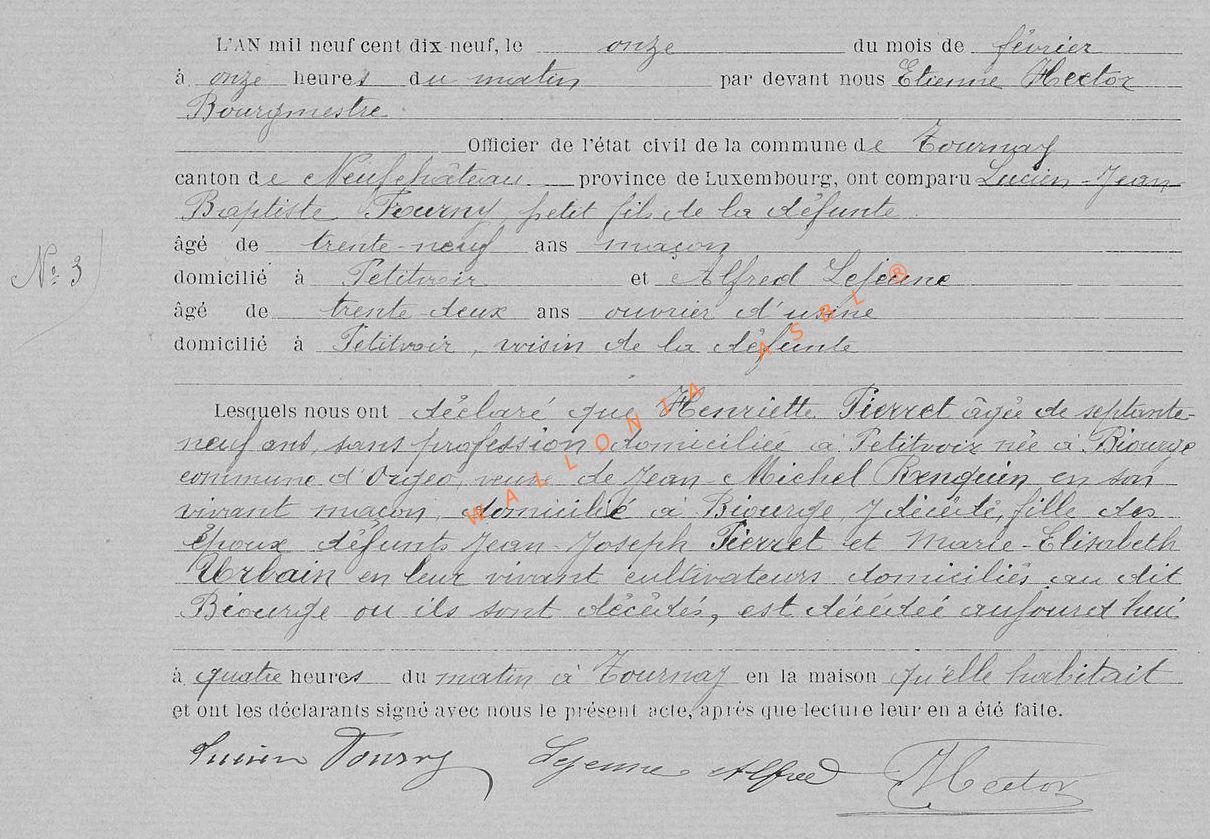 L'AN mil neuf cent dix neuf, le onze du mois de février
à onze heures du matin par devant nous Etienne Hector
Bourgmestre
Officier de l'état civil de la commune de Tournay
canton de Neufchâteau province de Luxembourg, ont comparu Lucien-Jean
Baptiste Fourny, petit fils de la défunte
âgé de trente-neuf ans maçon
N° 3
domicilié à Petitvoir et Alfred Lejeune
âgé de trente deux ans ouvrier d'usine
domicilié à Petitvoir, voisin de la défunte
Lesquels nous ont déclaré que Henriette Pierret âgée de septante-
neuf ans, sans profession domiciliée à Petitvoir née à Biourge
commune d'Orgeo, veuve de Jean-Michel Renquin en son
vivant maçon, domicilié à Biourge, y décédé, fille des
époux défunts Jean-Joseph Pierret et Marie-Elisabeth
Urbain en leur vivant cultivateurs domiciliés au dit
Biourge ou ils sont décédés, est décédée aujourd'hui
à quatre heures du matin à Tournay en la maison qu'elle habitait
et ont les déclarants signé avec nous le présent acte, après que lecture leur en a été faite.
Lucien Fourny Lejeune Alfred Hector
WALLONIA ASBL ®